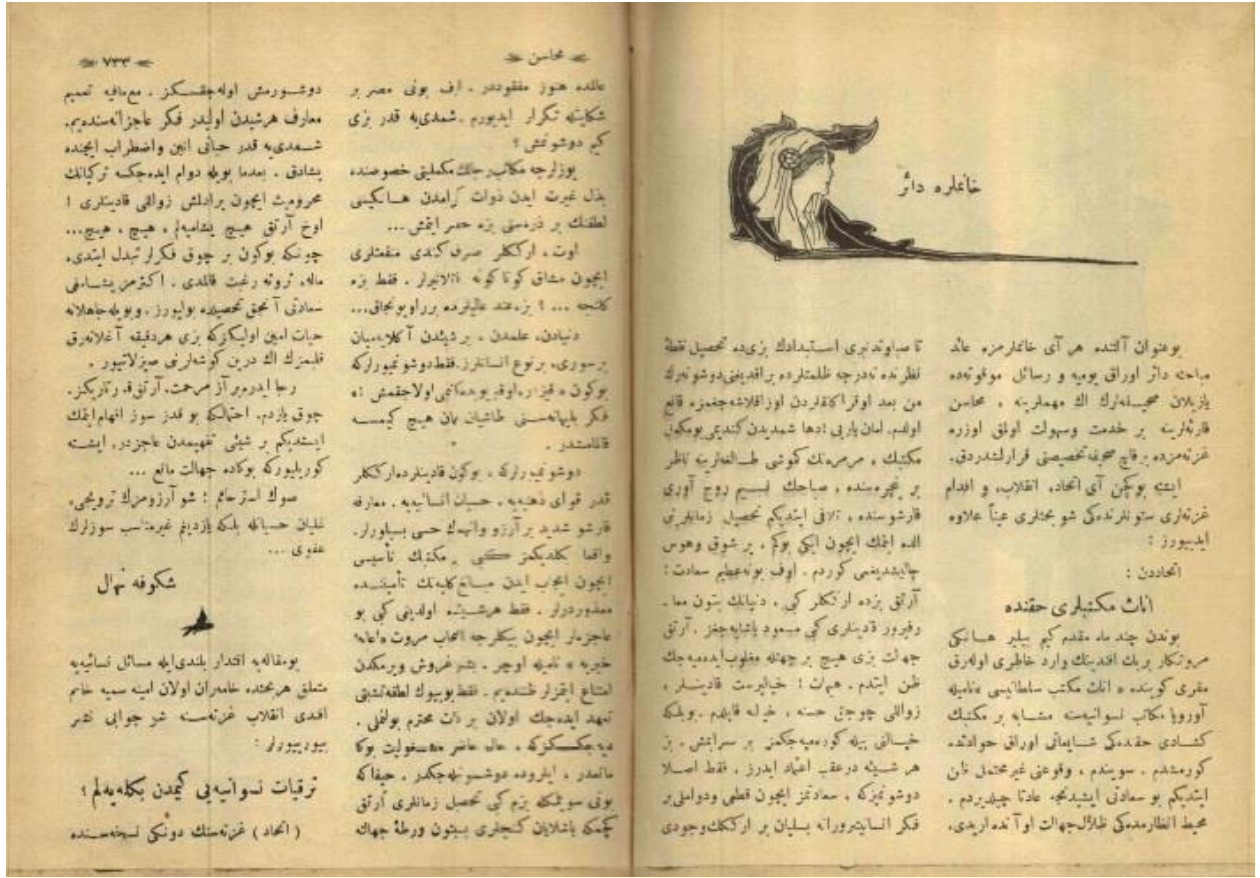 خانملره دائر
بوعنوان آلتنده هر آی خانملرمزه عائد
مباحثه دائر اوراق یومیه و رسائل موقوته‌ده
یازیلان صحیفه‌لرك اك مهملرینه ، محاسن
قارئه‌لرینه بر خدمت وسهولت اولمق اوزره
غزته‌مزده برقاچ صحیفه تخصیصنی قرارلشدردق.
ایشته بوکچن آی اتحاد، انقلاب، و اقدام
غزته‌لری ستونلرنده‌کی شو بحثلری عیناً علاوه
ایدیورز :
اتحاددن :
اناث مکتبلری حقنده
بوندن چند ماه مقدم کیم بیلیر هانکی
مروتکار بر بك افندینك وارد خاطری اوله‌رق
مقری کوینده « اناث مکتب سلطانیسی » نامیله
آوروپا مکاتب نسوانیه‌سنه مشابه بر مکتبك
کشادی حقنده‌کی شایعاتی اوراق حوادثده
کورمشدم . سویندم ، وقوعنی غیرمحتمل ظن
ایتدیکم بو سعادتی ایشیدنجه عادتا چیلدیردم .
محیط انظارمده‌کی ظلال جهالت او آنده اریدی.
تا صباوتدنبری استبدادك بزی‌ده تحصیل نقطهٔ
نظرنده نه‌درجه ظلمتلرده براقدیغنی دوشونه‌رك
من بعد اوقراکلقلردن اوزاقلاشه‌جغمزه قانع
اولدم. امان یاربی ! دها شمدیدن کندیمی بومکمل
مکتبك ، مرمره‌نك کموشی طالغه‌لرینه ناظر
بر پنجره‌سنده ، صباحك نسیم روح آوری
قارشوسنده ، تلافی ایتدیکم تحصیل زمانلرینی
الده ایتمك ایچون ایکی بوکم ، بر شوق وهوس
چالیشدیغمی کوردم . اوف بونه عظیم سعادت !
آرتق بزده ارککلر کبی ، دنیانك بتون معا-
رفپرور قادینلری کبی مسعود یاشایه‌جغز . آرتق
جهالت بزی هیچ بر جهتله مغلوب ایده‌میه‌جك
ظن ایتدم . هیهات ! خیالپرست قادینلر ،
زواللی چوجق حسنه ، خیاله قاپلدم . بویله
خیالنی بیله کوره‌میه‌جکمز بر سرابمش . بز
هر شیئه درعقب اعتماد ایدرز ، فقط اصلا
دوشونمیزکه ، سعادتمز ایچون قطعی ودواملی بر
فکر انسانیتپرورانه بسلیان بر ارککك وجودی
محاسن
عالمده هنوز مفقوددر . اوف بونی مصر بر
شکایتله تکرار ایدیورم . شمدی‌یه قدر بزی
کیم دوشونمش ؟
یوزلرجه مکاتب رجالك مکملیتی خصوصنده
بذل غیرت ایدن ذوات کرامدن هانکیسی
لطفنك بر ذره‌سنی بزه حصر ایتمش ...
اوت ، ارککلر صرف کندی منفعتلری
ایچون مشاق کوناکونه قاتلانیرلر . فقط بزه
کلنجه ... ؟ بز، عند عالیلرنده برر اویونجاق...
دنیادن، علمدن ، بر شیئدن آکلامیان
بر سوری، برنوع انسانلرز. فقط دوشونمیورلرکه
بوکون « قیزلر، اوقویوبده کاتبمی اولاجقمش ؟ »
فکر بلیهانه‌سنی طاشیان بان هیچ کیمسه
قالمامشدر .
دوشونمیورلرکه ، بوکون قادینلرده ارککلر
قدر قوای ذهنیه‌یه ، حسیات انسانیه‌یه ، معارفه
قارشو شدید بر آرزو وانهماك حسی بسلیورلر.
واقعا بکلدیکمز کبی بر مکتبك تأسیسی
ایچون ایجاب ایدن مبالغ کلیه‌نك تأمیننده
معذوردرلر . فقط هرشیئده اولدیغی کبی بو
عاجزه‌لر ایچون بیکلرجه اصحاب مروت « اعانهٔ
خیریه » نامیله اوچر . بشر غروش ویرمکدن
امتناع ایتمزلر ظننده‌یم . فقط بو بیوك لطفه تشبثی
تعهد ایده‌جك اولان بر ذات محترم بولنملی .
دیه‌جکسکزکه ، حال حاضر مشغولیت بوکا
مانعدر ، ایلروده دوشونیله‌جکدر . حیفاکه
بونی سویلمکله بزم کبی تحصیل زمانلری آرتق
کچمکه باشلایان کنجلری بستون ورطهٔ جهالته
٧٣٣
دوشورمش اوله‌جقسکز . مع‌مافیه تعمیم
معارف هرشیدن اولیدر فکر عاجزانه‌سنده‌یم.
شمدی‌یه قدر حیاتی انین واضطراب ایچنده
یشادق . بعدما بویله دوام ایده‌جکسه ترکیانك
محرومیت ایچون یرادلمش زواللی قادینلری !
اوخ آرتق هیچ یشامیه‌لم ، هیچ ، هیچ...
چونکه بوکون بر چوق فکرلر تبدل ایتدی،
ماله، ثروته رغبت قالمدی . اکثرمز یشامغی
سعادتی آنجق تحصیلده بولیورز . وبویله جاهلانه
حیات امین اولیکزکه بزی هردقیقه آغلاته‌رق
قلبمزك اك درین کوشه‌لرنی صیزلاتییور .
رجا ایدرم بر آز مرحمت، آرتق قدرتاریکز.
چوق یازدم. احتمالکه بو قدر سوز افهام ایتمك
ایستدیکم بر شیئی تفهیمدن عاجزدر، ایشته
کوریلیورکه بوکاده جهالت مانع ...
صوك استرحامم ؛ شو آرزومزك ترویجی،
غلیان حسیاتله بلکه یازدیغم غیرمناسب سوزلرك
عفوی ...
شکوفه نهال
بومقاله‌یه اقتدار بلندی‌ایله مسائل نسائیه‌یه
متعلق هربحثده خامه‌ران اولان امینه سمیه خانم
افندی انقلاب غزته‌سنه شو جوابی نشر
بیورییورلر :
ترقیات نسوانیه‌یی کیمدن بکله‌یه‌لم ؟
( اتحاد ) غزته‌سنك دونکی نسخه‌سنده